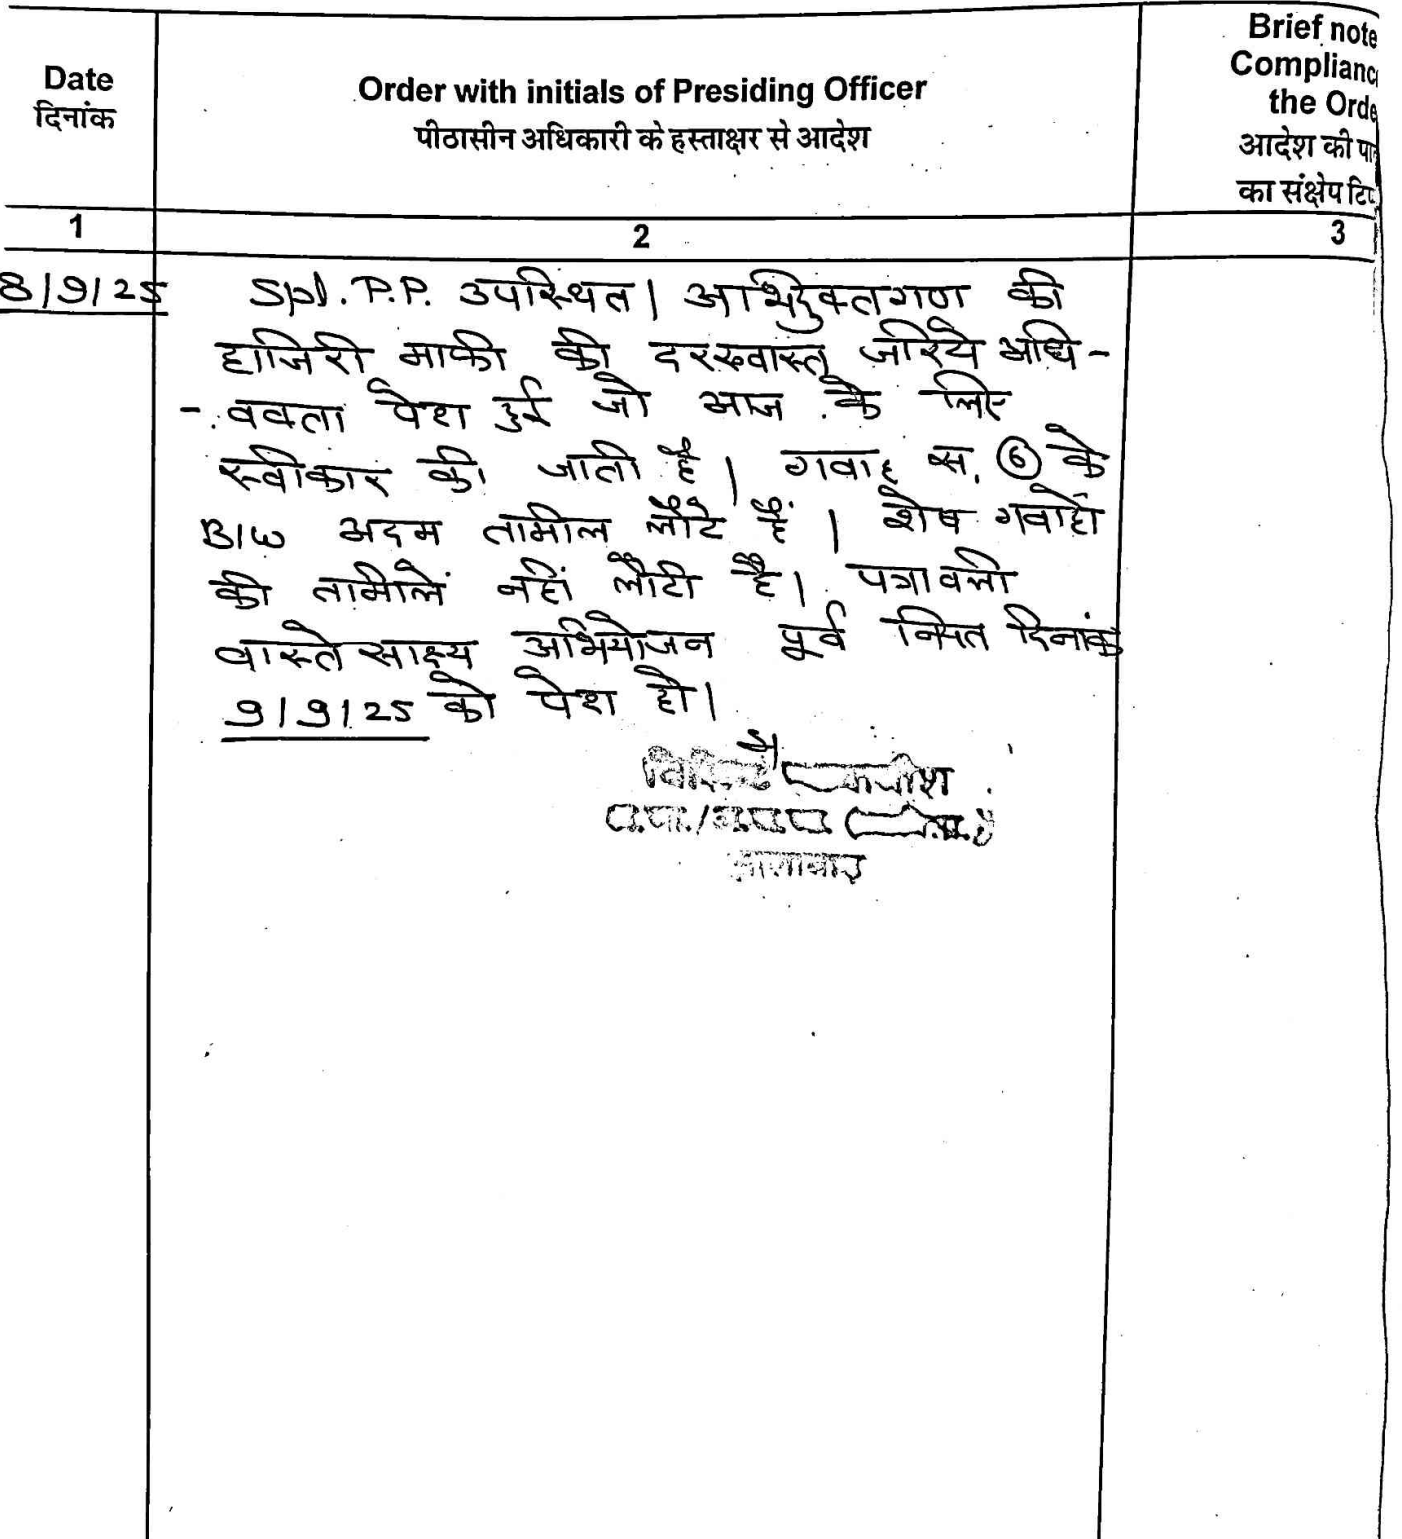 Date
दिनांक
Order with initials of Presiding Officer
पीठासीन अधिकारी के हस्ताक्षर से आदेश
Brief note
Complianc
the Orde
आदेश की पा
का संक्षेप टि
1
2
3
8/9/25
Spl. P.P. उपस्थित। अभियुक्तगण की
हाजिरी माफी की दरख्वास्त जरिये अधि-
-वक्ता पेश हुई जो आज के लिए
स्वीकार की जाती है। गवाह स. 6 के
B/W अदम तामील लौटे हैं। शेष गवाहों
की तामीलें नहीं लौटी है। पत्रावली
वास्ते साक्ष्य अभियोजन पूर्व नियत दिनांक
9/9/25 को पेश हो।